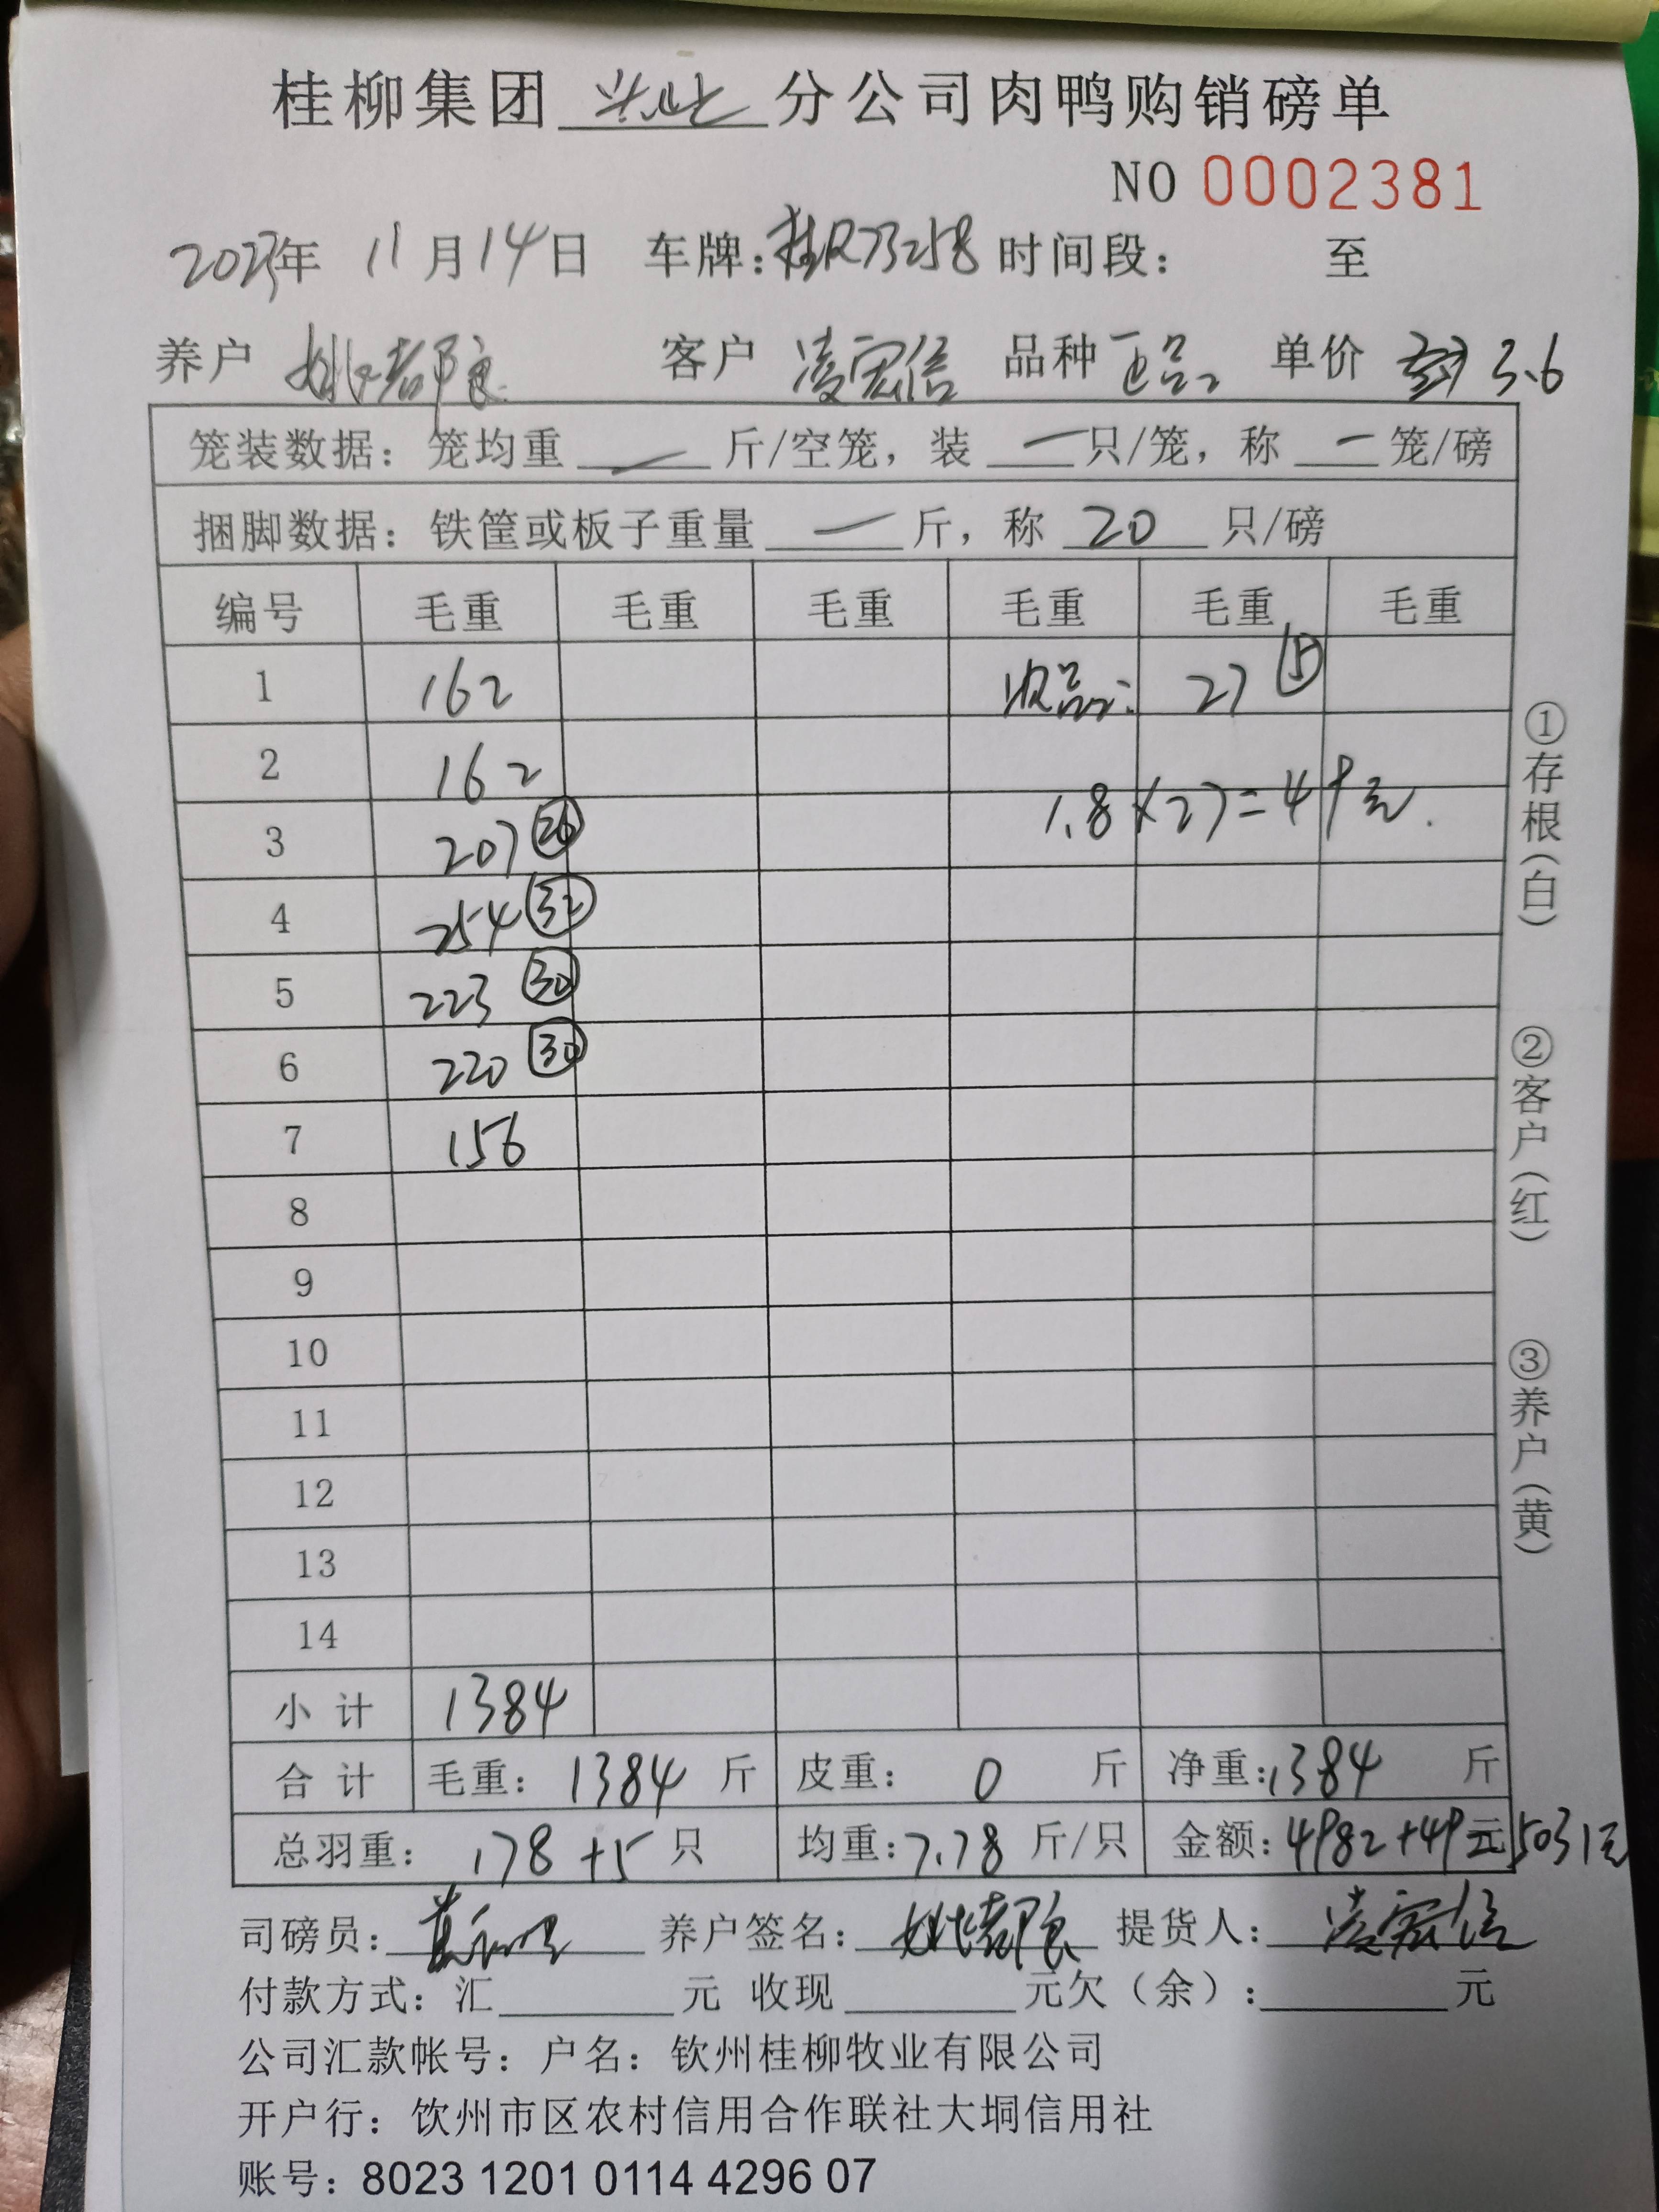 桂柳集团 分公司肉鸭购销磅单
NO 0002381
2023年 11月14日 车牌:桂R73258 时间段: 至
养户 客户 凌宏信 品种 正品 单价 3.6
笼装数据: 笼均重 一 斤/空笼, 装 一 只/笼, 称 一 笼/磅
捆脚数据: 铁筐或板子重量 一 斤, 称 20 只/磅
编号 毛重 毛重 毛重 毛重 毛重 毛重
1 162 次品: 27 ⑤
2 162
1.8×27=49元.
3 207 ㉖
4 254 ㉜
5 223 ㉚
6 220 ㉚
7 156
8
9
10
11
12
13
14
小计 1384
合计 毛重: 1384 斤 皮重: 0 斤 净重:1384 斤
总羽重: 178+5 只 均重:7.78 斤/只 金额:4982+49元 5031元
司磅员: 养户签名: 提货人: 凌宏信
付款方式: 汇 元 收现 元欠(余): 元
公司汇款帐号: 户名: 钦州桂柳牧业有限公司
开户行: 饮州市区农村信用合作联社大垌信用社
账号: 8023 1201 0114 4296 07
①存根(白)
②客户(红)
③养户(黄)